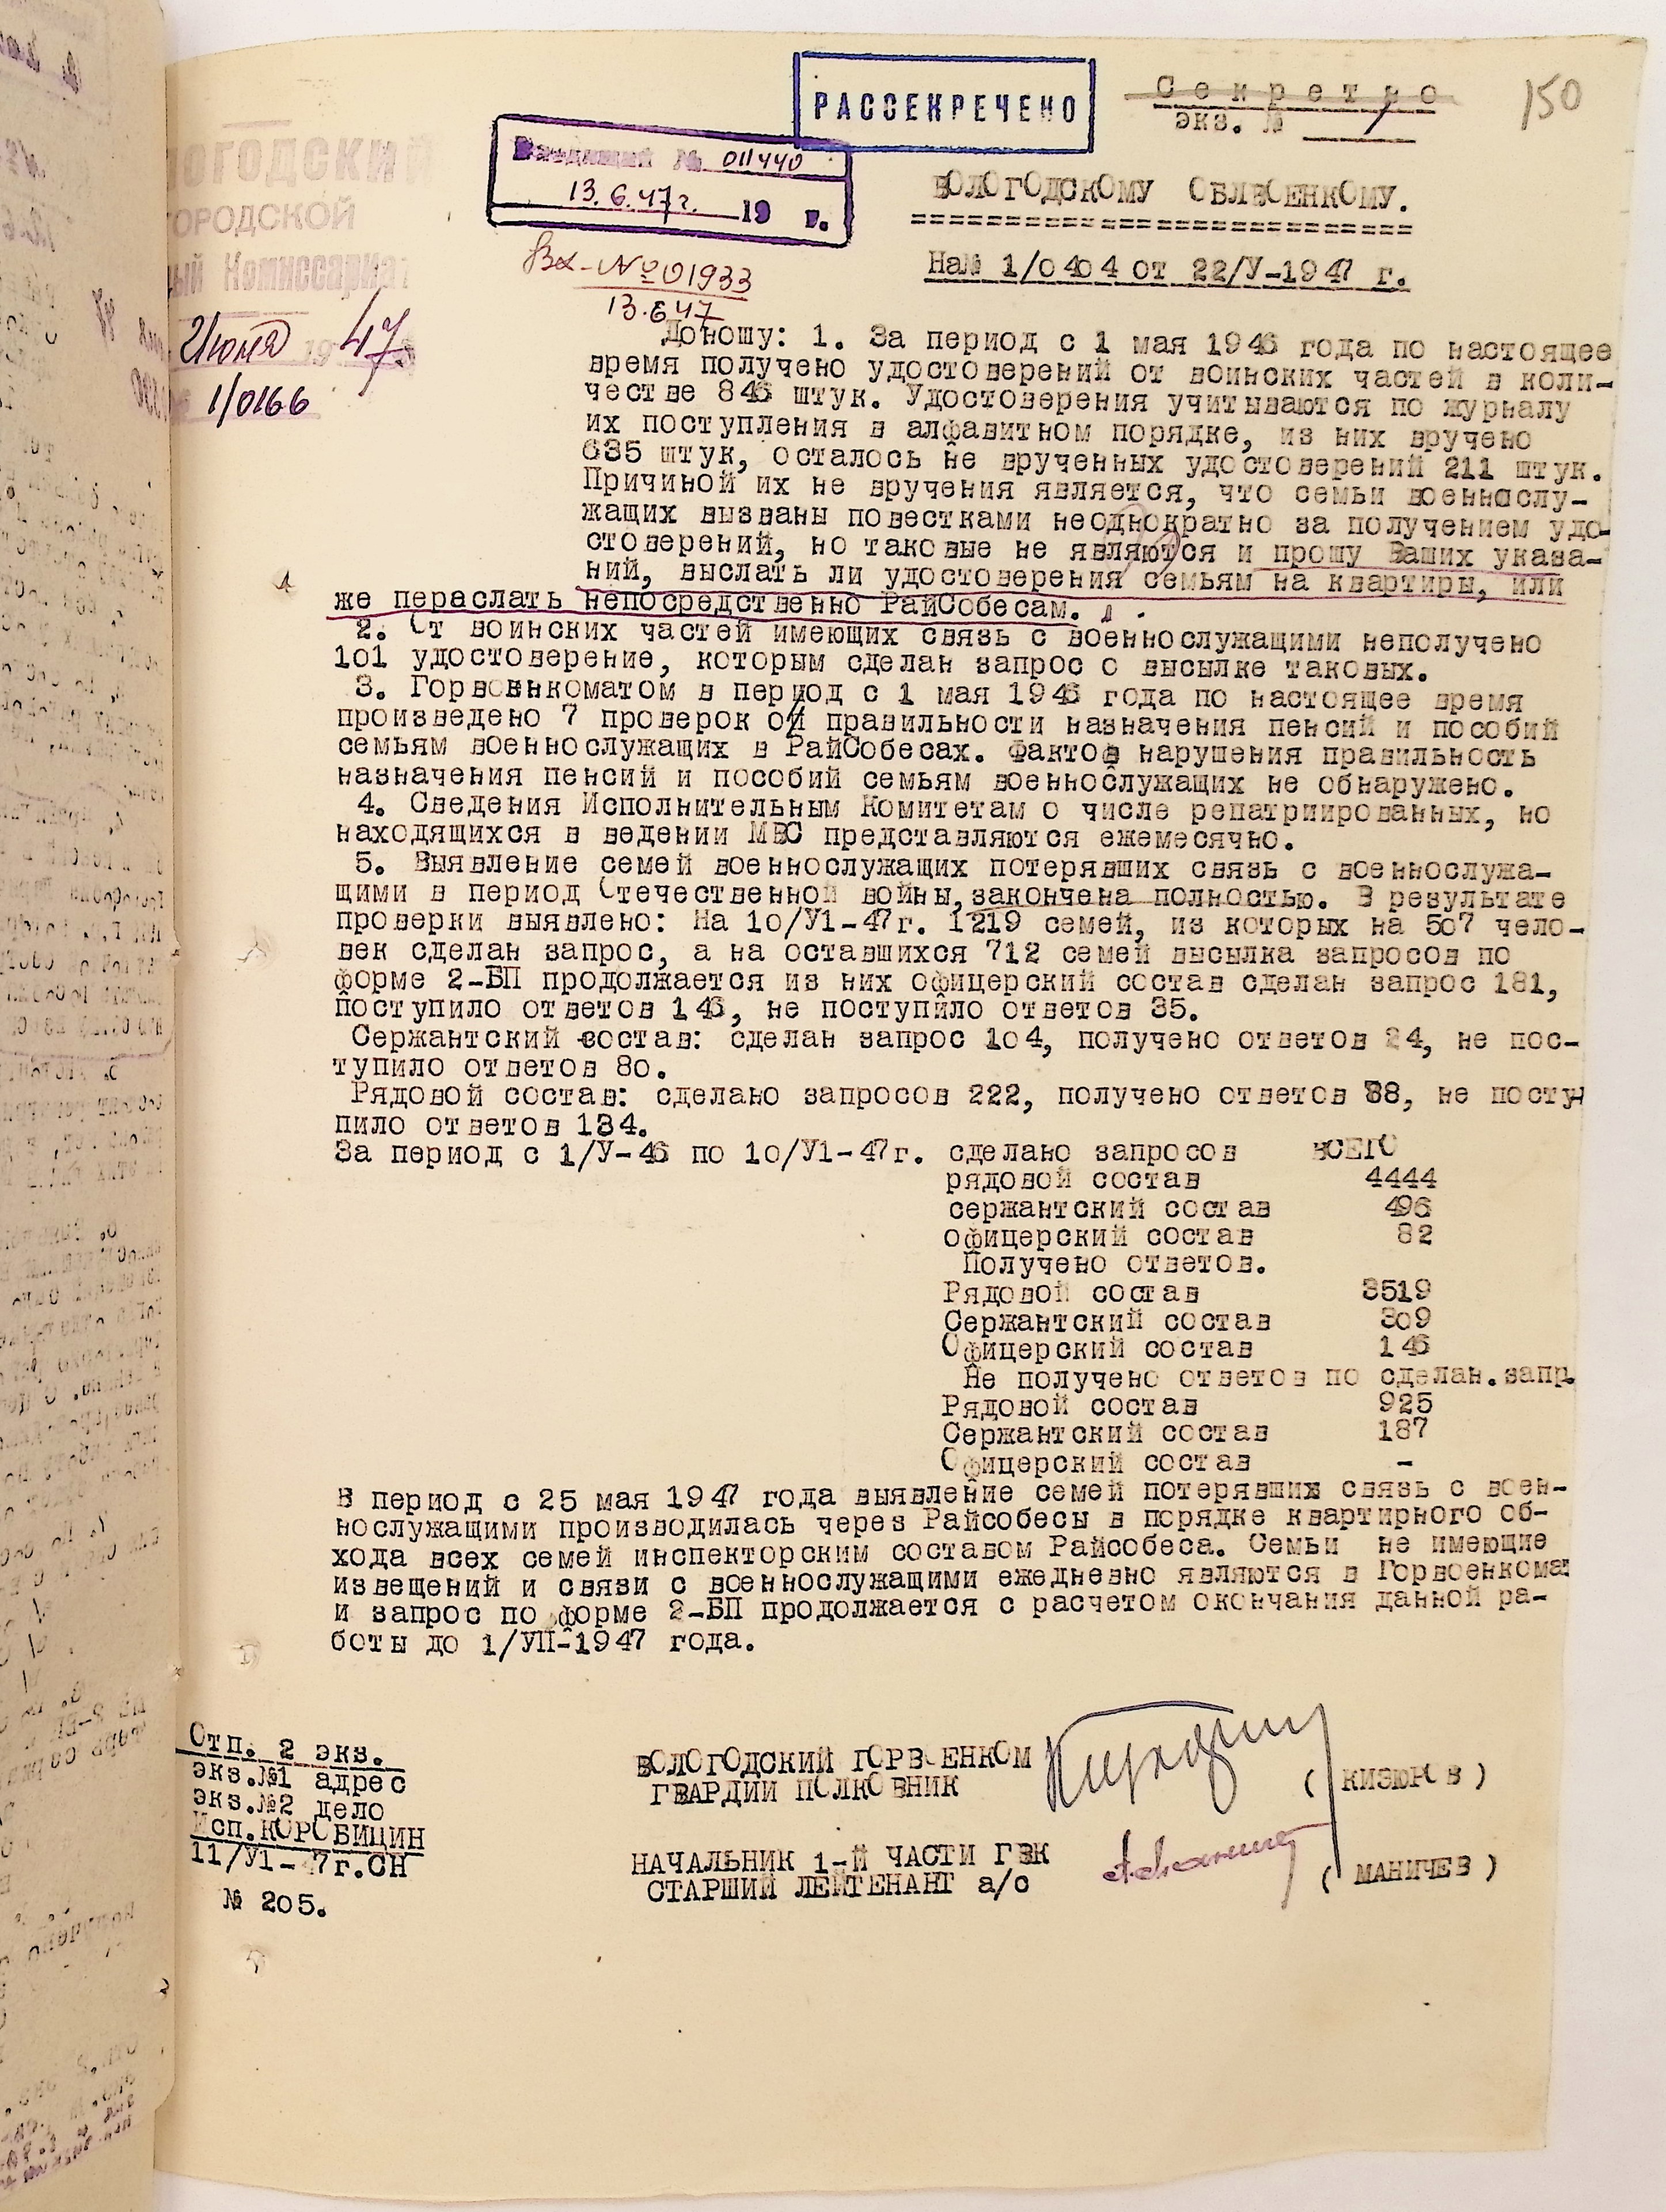 РАССЕКРЕЧЕНО
Секретно
экз. № 1
150
№ 011440
13.6.47г. 19 г.
Вх-№01933
13.6.47
ВОЛОГОДСКИЙ
ГОРОДСКОЙ
ный Комиссариат
июня 1947
1/0166
ВОЛОГОДСКОМУ ОБЛВОЕНКОМУ.
==========================
На№ 1/0404 от 22/У-1947 г.
Доношу: 1. За период с 1 мая 1946 года по настоящее
время получено удостоверений от воинских частей в коли-
честве 846 штук. Удостоверения учитываются по журналу
их поступления в алфавитном порядке, из них вручено
635 штук, осталось не врученных удостоверений 211 штук.
Причиной их не вручения является, что семьи военнослу-
жащих вызваны повестками неоднократно за получением удо-
стоверений, но таковые не являются и прошу Ваших указа-
ний, выслать ли удостоверения семьям на квартиры, или
же пераслать непосредственно РайСобесам.
2. От воинских частей имеющих связь с военнослужащими неполучено
1о1 удостоверение, которым сделан запрос о высылке таковых.
3. Горвоенкоматом в период с 1 мая 1946 года по настоящее время
произведено 7 проверок о правильности назначения пенсий и пособий
семьям военнослужащих в РайСобесах. Фактов нарушения правильность
назначения пенсий и пособий семьям военнослужащих не обнаружено.
4. Сведения Исполнительным Комитетам о числе репатриированных, но
находящихся в ведении МВС представляются ежемесячно.
5. Выявление семей военнослужащих потерявших связь с военнослужа-
щими в период Отечественной войны, закончена полностью. В результате
проверки выявлено: На 1о/У1-47г. 1219 семей, из которых на 5о7 чело-
век сделан запрос, а на оставшихся 712 семей высылка запросов по
форме 2-БП продолжается из них офицерский состав сделан запрос 181,
поступило ответов 146, не поступило ответов 35.
Сержантский состав: сделан запрос 1о4, получено ответов 24, не пос-
тупило ответов 8о.
Рядовой состав: сделано запросов 222, получено ответов 88, не посту
пило ответов 134.
За период с 1/У-46 по 1о/У1-47г. сделано запросов ВСЕГО
рядовой состав 4444
сержантский состав 496
офицерский состав 82
Получено ответов.
Рядовой состав 3519
Сержантский состав 3о9
Офицерский состав 146
Не получено ответов по сделан.запр.
Рядовой состав 925
Сержантский состав 187
Офицерский состав -
В период с 25 мая 1947 года выявление семей потерявших связь с воен-
нослужащими производилась через Райсобесы в порядке квартирного об-
хода всех семей инспекторским составом Райсобеса. Семьи не имеющие
извещений и связи с военнослужащими ежедневно являются в Горвоенкомат
и запрос по форме 2-БП продолжается с расчетом окончания данной ра-
боты до 1/УП-1947 года.
Отп. 2 экз.
экз.№1 адрес
экз.№2 дело
Исп.КОРОБИЦИН
11/У1-47г.СН
№ 2о5.
ВОЛОГОДСКИЙ ГОРВОЕНКОМ
ГВАРДИИ ПОЛКОВНИК
( КИЗЮРОВ )
НАЧАЛЬНИК 1-Й ЧАСТИ ГВК
СТАРШИЙ ЛЕЙТЕНАНТ а/с
( МАНИЧЕВ )